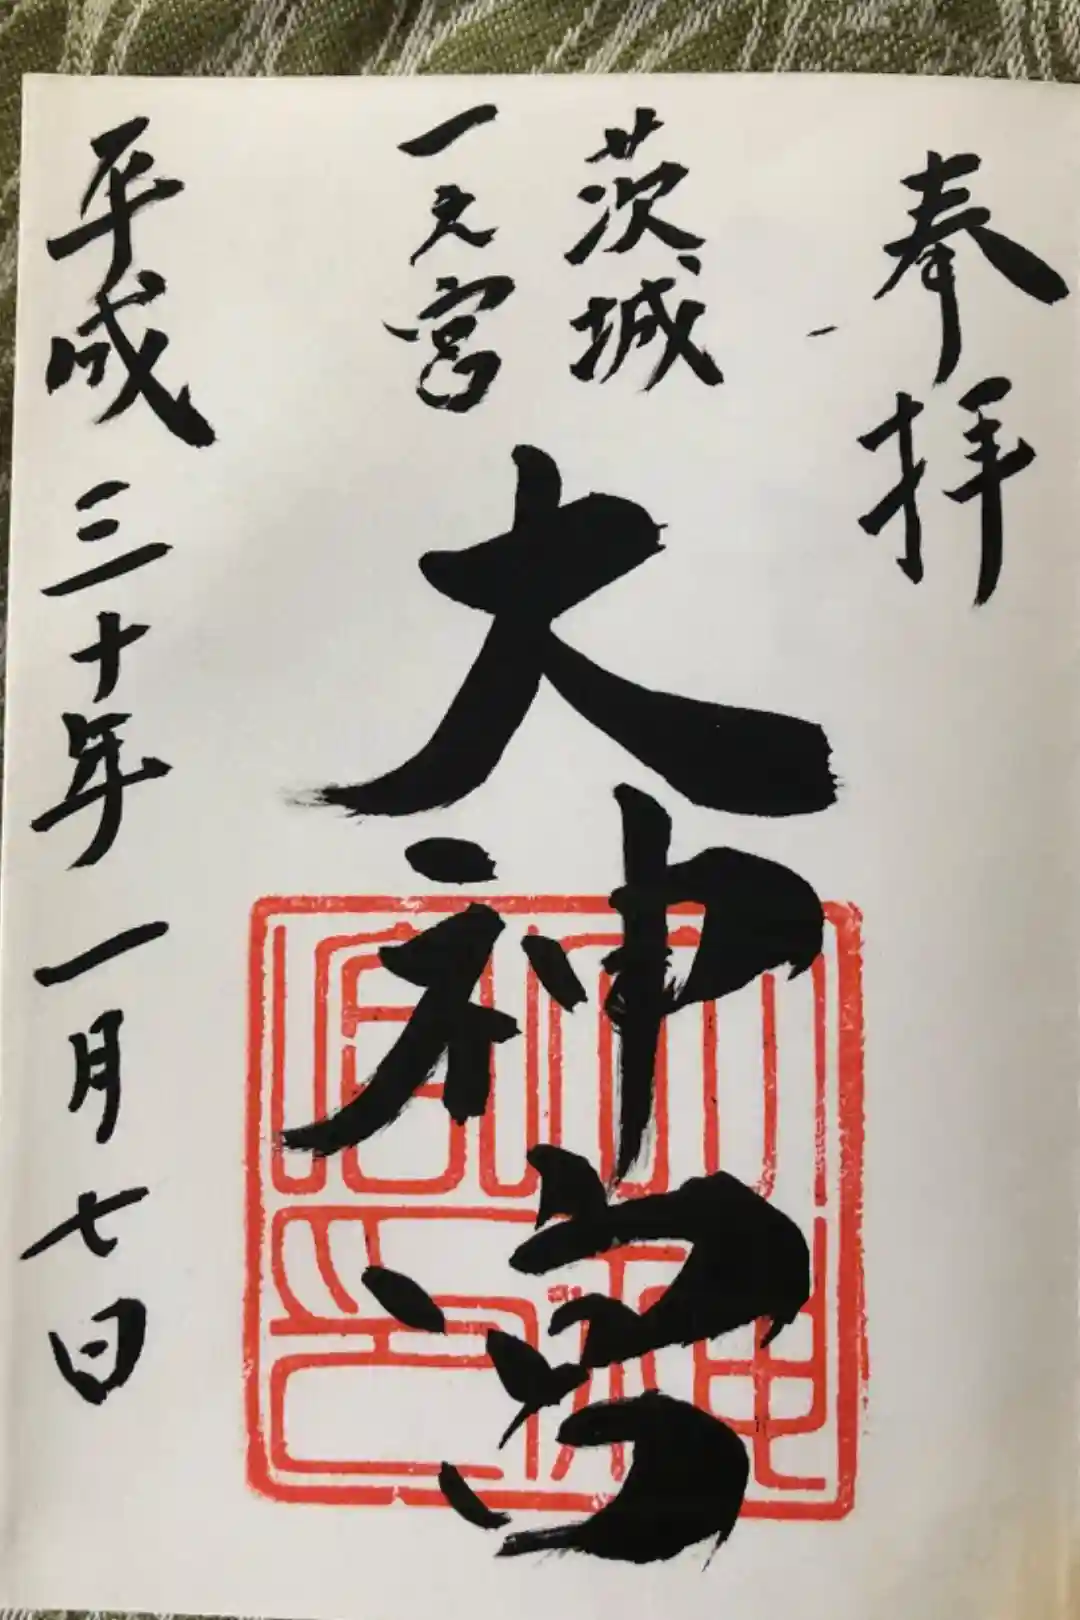 奉拝
茨城
一之宮
大神宮
平成三十年一月七日
大神宮印